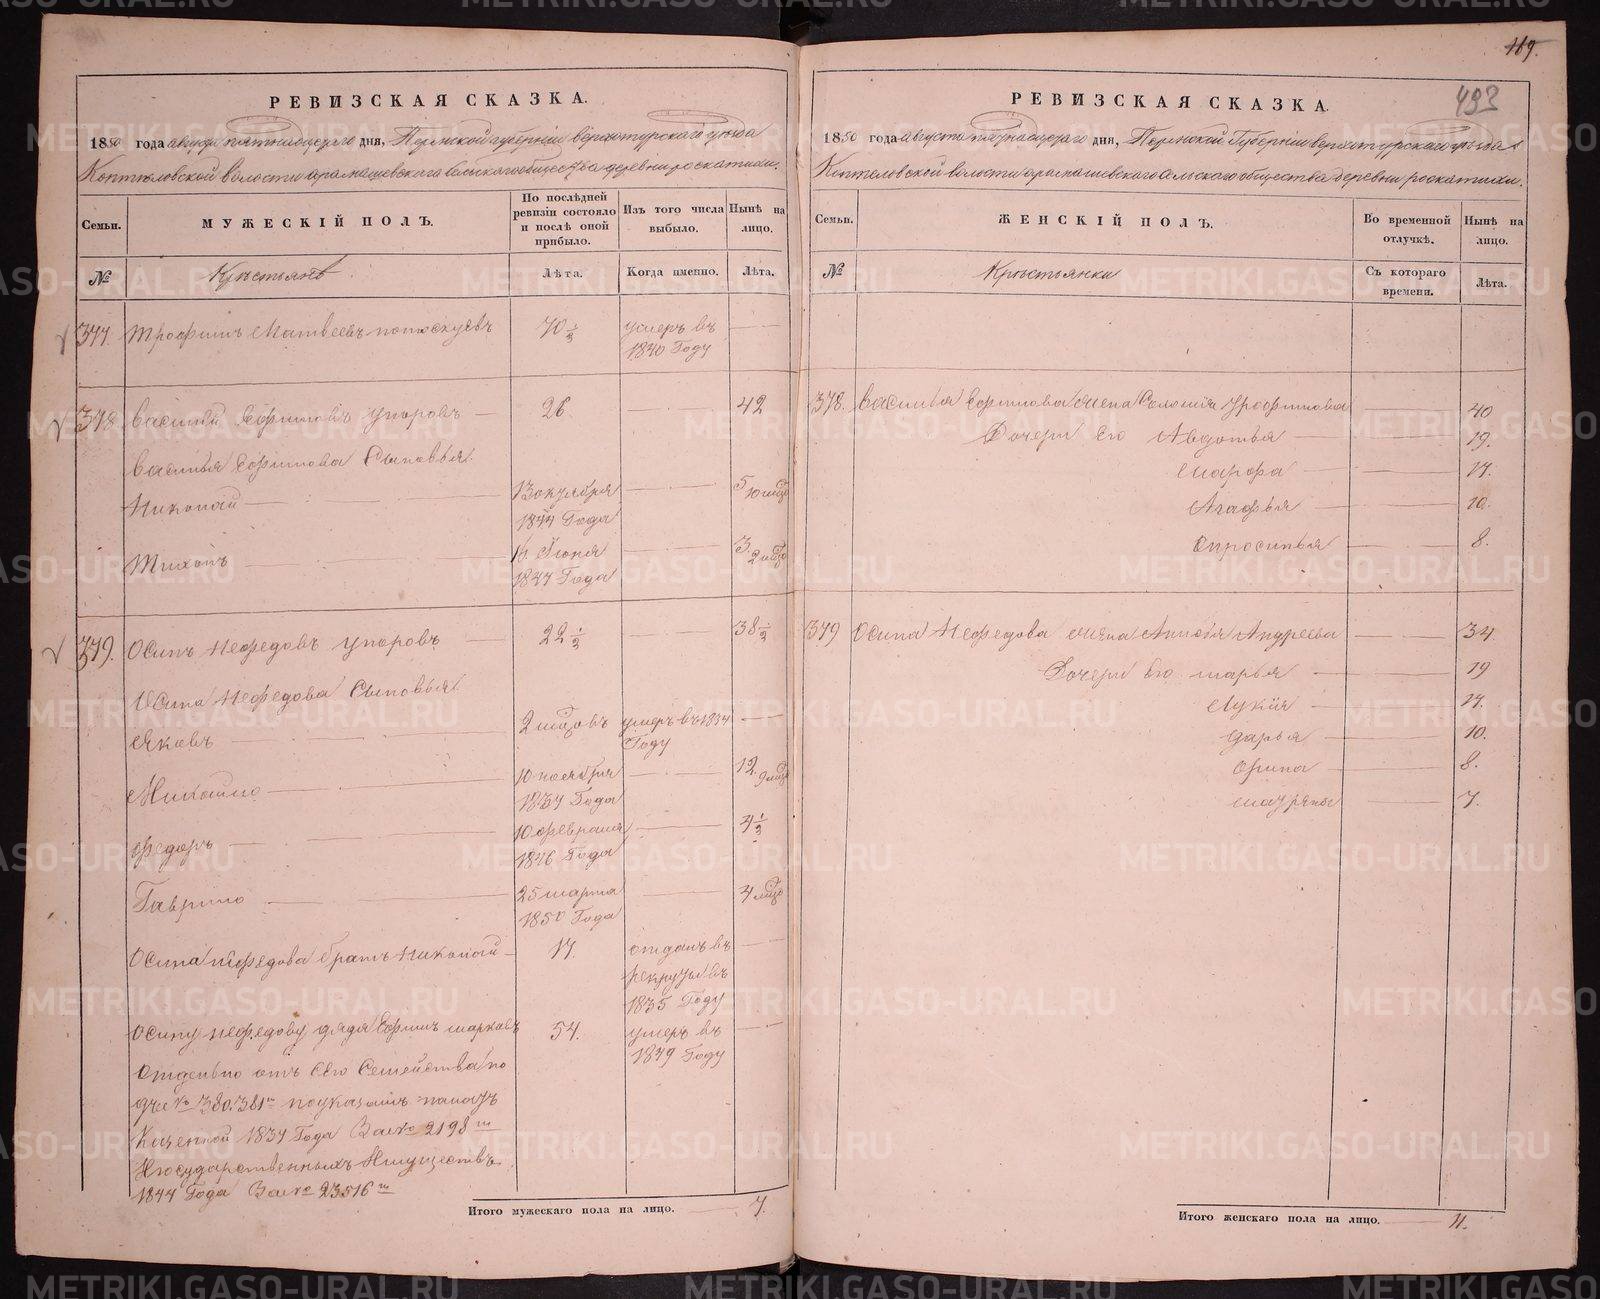 РЕВИЗСКАЯ СКАЗКА.
1850 года августа пятнадцатаго дня, Пермской губернiи верхотурскаго уезда
Коптеловской волости арамашевскаго сельскаго общества деревни роскатихи.
Семьи.
МУЖЕСКIЙ ПОЛЪ.
По послѣдней ревизiи состояло и послѣ оной прибыло.
Изъ того числа выбыло.
Нынѣ на лицо.
№
Крестьянъ
Лѣта.
Когда именно.
Лѣта.
377. трофимъ Матвеевъ 70 1/2 умеръ въ
1840 Году
378 василий Ефимовъ упоровъ 26. 42
василья Ефимова Сыновья
Николай 13 октября 5 10 мцо
1844 Года
Тихонъ Iюня 3. 2 мцо
1847 Года
379. Осипъ Нефедовъ упоровъ 22 1/2 38 1/2
Осипа Нефедова Сыновья
Яковъ 2 мцовъ умеръ въ 1834
Году
Михайло 10 ноября 12. 9 мцо
1837 Года
Федоръ 10 февраля 4 1/2
1846 Года
Гаврило 25 марта 4 мцо
1850 Года
Осипа Нефедова братъ Николай 17. отданъ въ
рекруты въ
1835 Году
Осипу Нефедову дядя Ефимъ марковъ 54. умеръ въ
1849 Году
Отдельно отъ Его Семейства по
380. 381 по указамъ палатъ
Казенной 1837 Года За № 2198 м
Государственныхъ Имуществъ
1844 Года За № 23516 м
Итого мужескаго пола на лицо. 7.
169.
493
РЕВИЗСКАЯ СКАЗКА.
1850 года августа пятнадцатаго дня, Пермской Губернiи верхотурскаго уезда
Коптеловской волости арамашевскаго сельскаго общества деревни роскатихи.
Семьи.
ЖЕНСКIЙ ПОЛЪ.
Во временной отлучкѣ.
Нынѣ на лицо.
№
Крестьянки
Съ котораго времени.
Лѣта.
378. василья Ефимова жена Соломiя Трофимова 40
Дочери Его Авдотья 19.
марфа 17.
Агафья 10.
Апросинья 8.
379 Осипа Нефедова жена Андреева 34
Дочери Его марья 19
Лукiя 17.
дарья 10.
Орина 8.
7.
Итого женскаго пола на лицо. 11.
METRIKI.GASO-URAL.RU